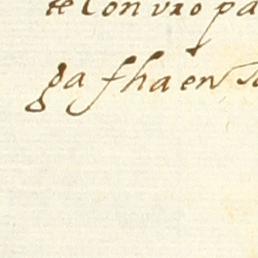 te con vro pa
ga fha en